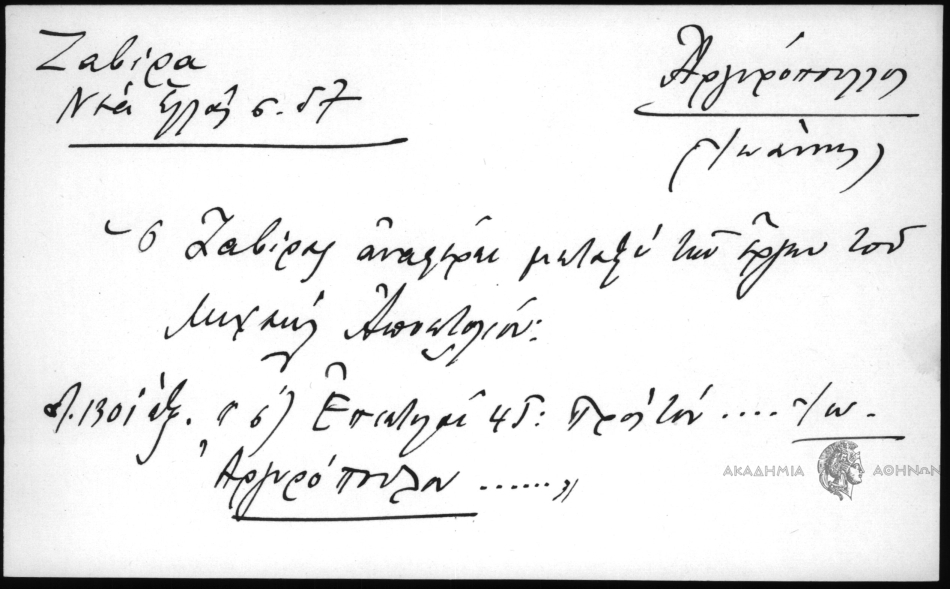 Ζαβίρα
Νέα Ἑλλάς σ. 57
Ἀργυρόπουλος
(Ἰωάννης)
Ὁ Ζαβίρας ἀναφέρει μεταξὺ τῶν ἔργων τοῦ
Μιχαὴλ Ἀποστολίου:
" 6) Ἐπιστολαὶ 45: Πρὸς τόν .... Ἰω.
Ἀργυρόπουλον ......"
ΑΚΑΔΗΜΙΑ ΑΘΗΝΩΝ